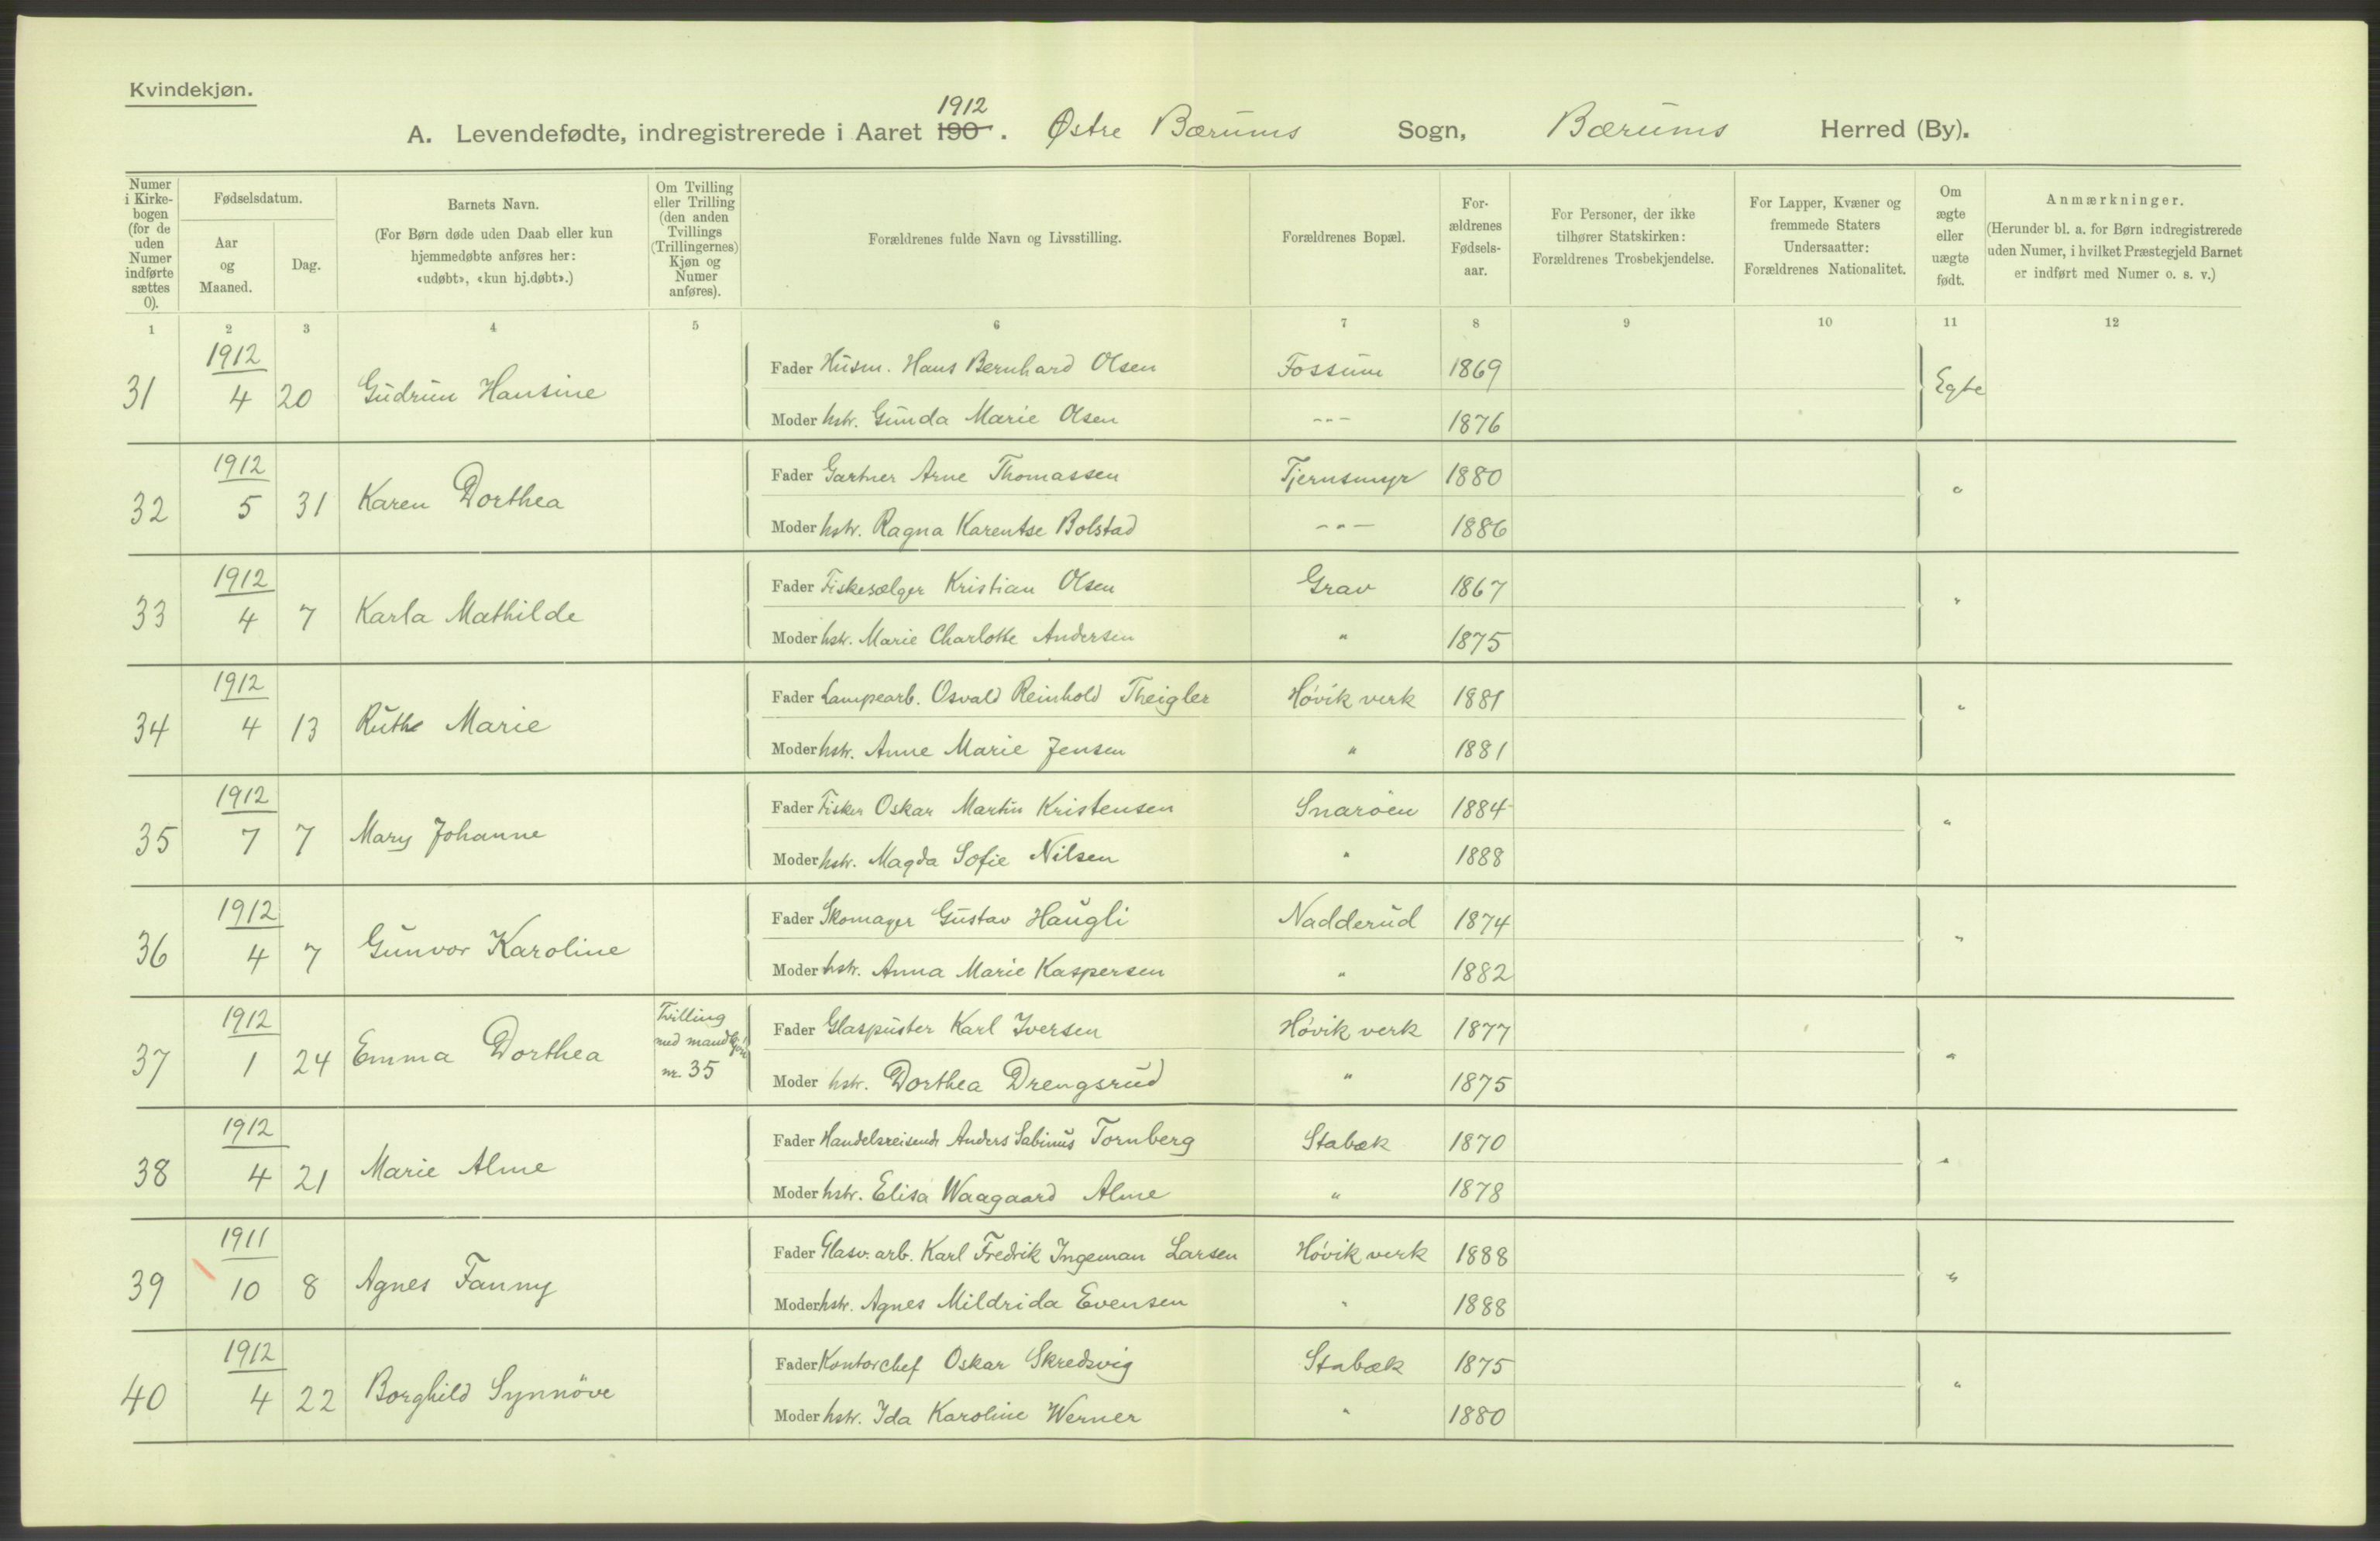 Kvindekjøn.
1912
A. Levendefødte, indregistrerede i Aaret 190 . Østre Bærums Sogn, Bærums Herred (By).
Numer i Kirke-bogen (for de uden Numer indførte sættes 0).
Fødselsdatum.
Aar og Maaned.
Dag.
Barnets Navn.
(For Børn døde uden Daab eller kun hjemmedøbte anføres her: «udøbt», «kun hj.døbt».)
Om Tvilling eller Trilling (den anden Tvillings (Trillingernes) Kjøn og Numer anføres).
Forældrenes fulde Navn og Livsstilling.
Forældrenes Bopæl.
For-ældrenes Fødsels-aar.
For Personer, der ikke tilhører Statskirken: Forældrenes Trosbekjendelse.
For Lapper, Kvæner og fremmede Staters Undersaatter: Forældrenes Nationalitet.
Om ægte eller uægte født.
Anmærkninger.
(Herunder bl. a. for Børn indregistrerede uden Numer, i hvilket Præstegjeld Barnet er indført med Numer o. s. v.)
1 2 3 4 5 6 7 8 9 10 11 12
1912
31 4 20 Gudrun Hansine Fader Husm. Hans Bernhard Olsen Fossum 1869 Egte
Moder hstr. Gunda Marie Olsen -"- 1876
1912
32 5 31 Karen Dorthea Fader Gartner Arne Thomassen Tjernsmyr 1880 "
Moder hstr. Ragna Karentse Bolstad -"- 1886
1912
33 4 7 Karla Mathilde Fader Fiskesælger Kristian Olsen Grav 1867 "
Moder hstr. Marie Charlotte Andersen " 1875
1912
34 4 13 Ruth Marie Fader Lampearb. Osvald Reinhold Theigler Høvik verk 1881 "
Moder hstr. Anne Marie Jensen " 1881
1912
35 7 7 Mary Johanne Fader Fisker Oskar Martin Kristensen Snarøen 1884 "
Moder hstr. Magda Sofie Nilsen " 1888
1912
36 4 7 Gunvor Karoline Fader Skomager Gustav Haugli Nadderud 1874 "
Moder hstr. Anna Marie Kaspersen " 1882
1912
37 1 24 Emma Dorthea Tvilling med mandkjøn nr. 35 Fader Glaspuster Karl Iversen Høvik verk 1877 "
Moder hstr. Dorthea Drengsrud " 1875
1912
38 4 21 Marie Alme Fader Handelsreisende Anders Sabinus Tornberg Stabæk 1870 "
Moder hstr. Elisa Waagaard Alme " 1878
1911
39 10 8 Agnes Fanny Fader Glasv. arb. Karl Fredrik Ingeman Larsen Høvik verk 1888 "
Moder hstr. Agnes Mildrida Evensen " 1888
1912
40 4 22 Borghild Synnöve Fader Kontorchef Oskar Skredsvig Stabæk 1875 "
Moder hstr. Ida Karoline Werner " 1880